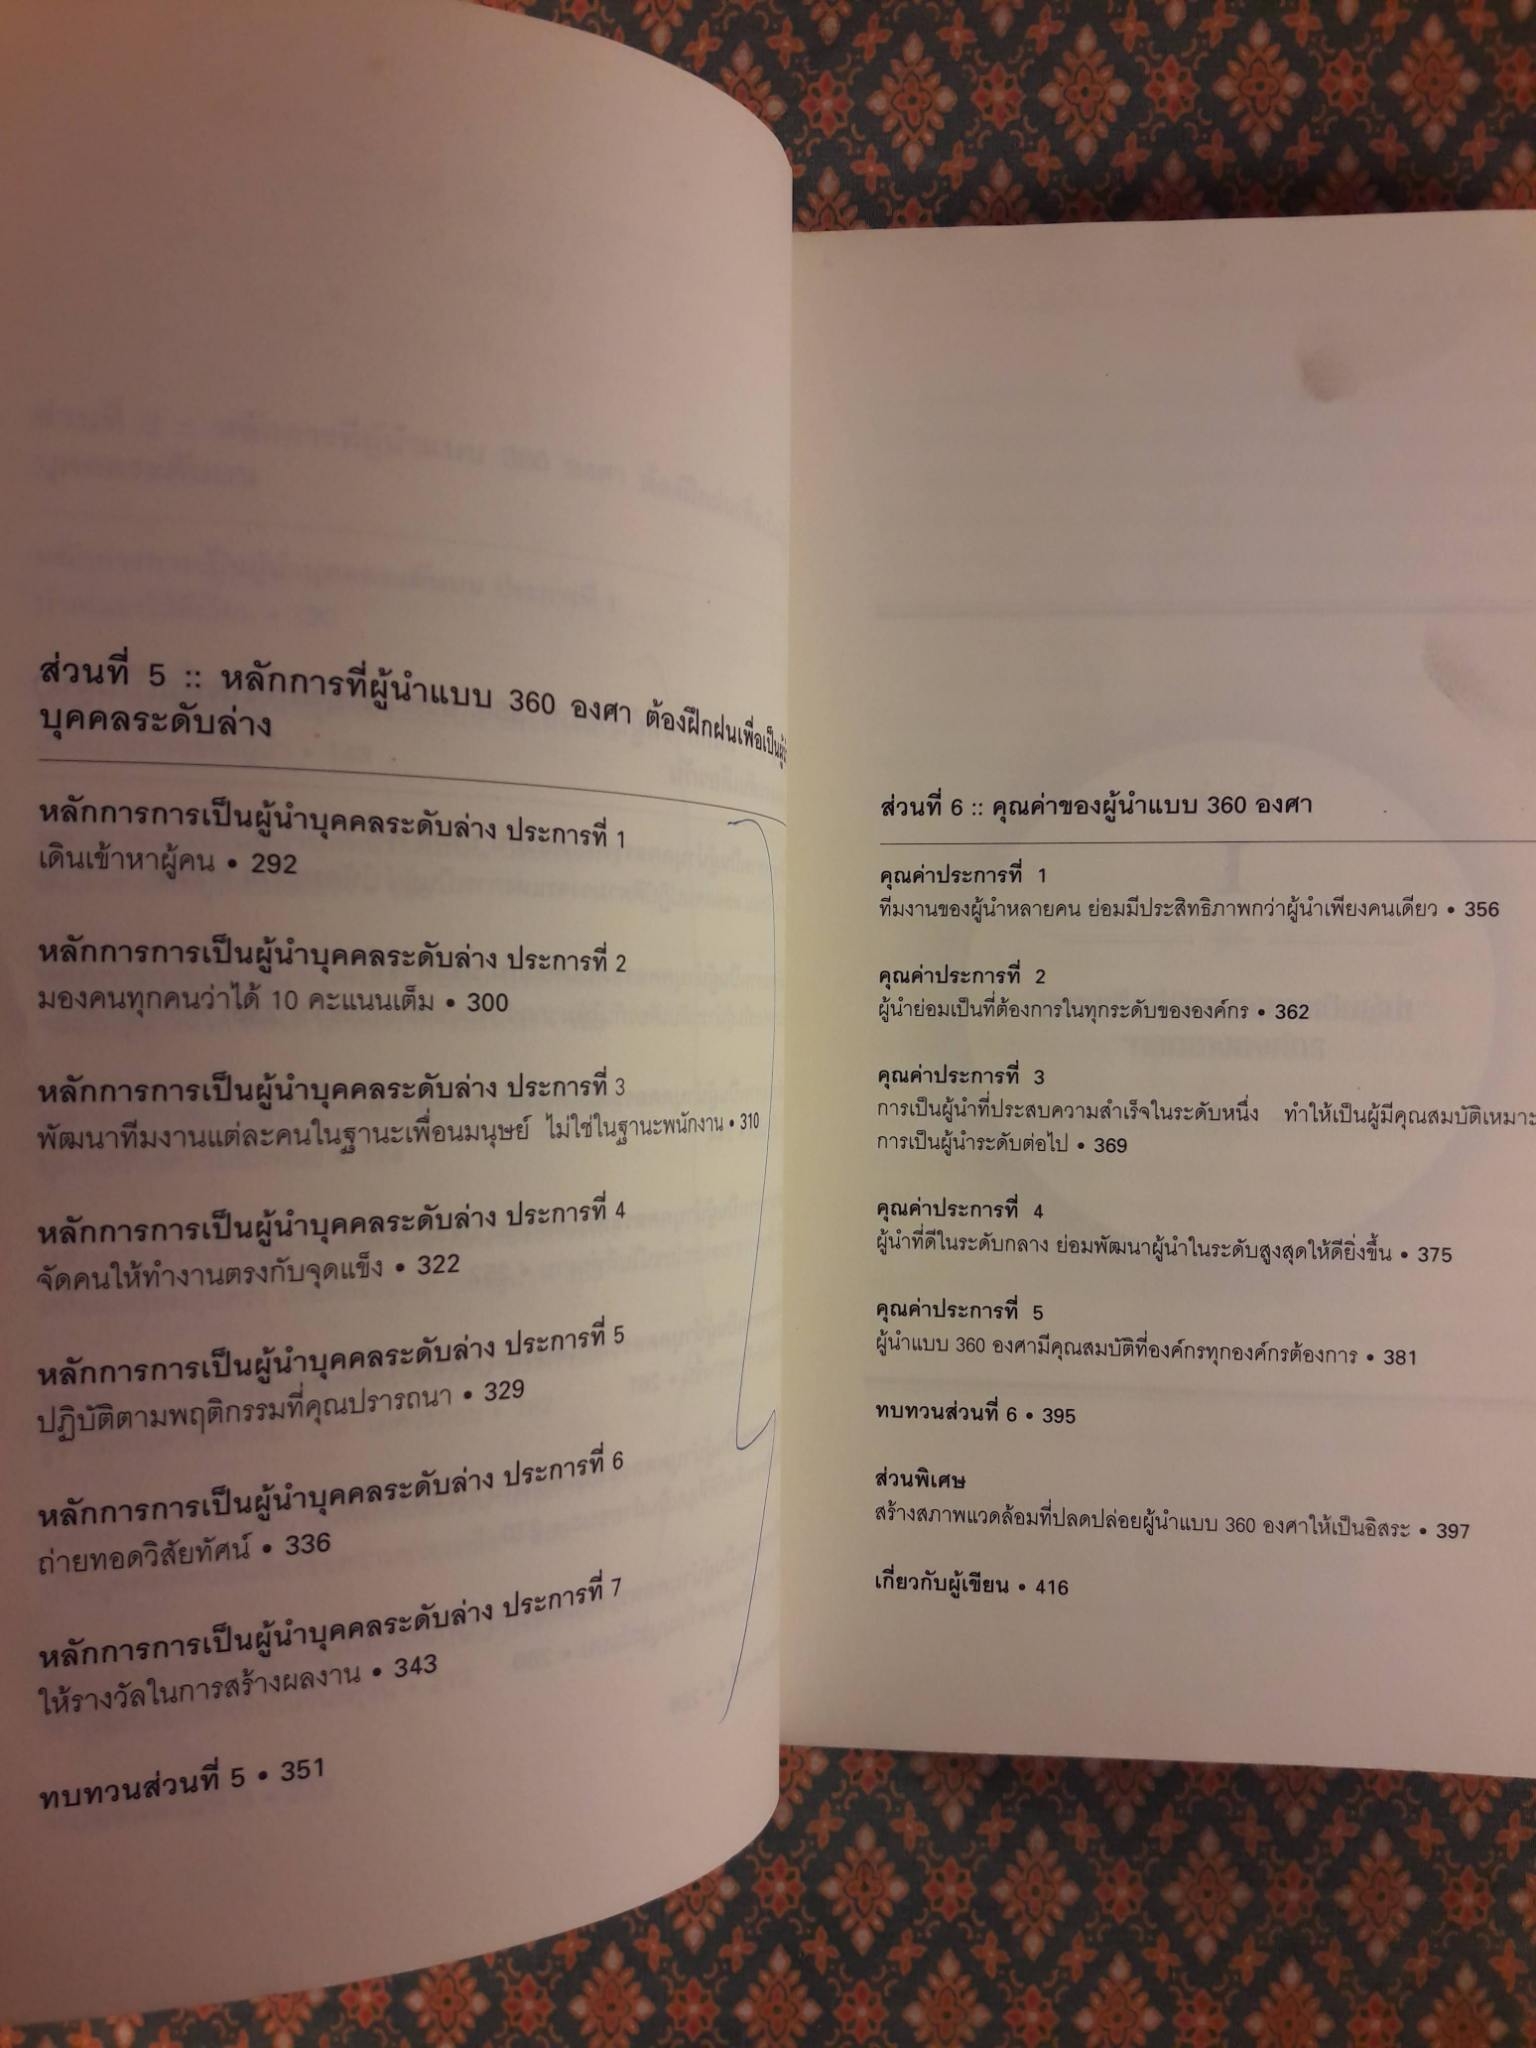 ส่วนที่ 5 :: หลักการที่ผู้นำแบบ 360 องศา ต้องฝึกฝนเพื่อเป็น
บุคคลระดับล่าง
หลักการการเป็นผู้นำบุคคลระดับล่าง ประการที่ 1
เดินเข้าหาผู้คน • 292
หลักการการเป็นผู้นำบุคคลระดับล่าง ประการที่ 2
มองคนทุกคนว่าได้ 10 คะแนนเต็ม • 300
หลักการการเป็นผู้นำบุคคลระดับล่าง ประการที่ 3
พัฒนาทีมงานแต่ละคนในฐานะเพื่อนมนุษย์ ไม่ใช่ในฐานะพนักงาน • 310
หลักการการเป็นผู้นำบุคคลระดับล่าง ประการที่ 4
จัดคนให้ทำงานตรงกับจุดแข็ง • 322
หลักการการเป็นผู้นำบุคคลระดับล่าง ประการที่ 5
ปฏิบัติตามพฤติกรรมที่คุณปรารถนา • 329
หลักการการเป็นผู้นำบุคคลระดับล่าง ประการที่ 6
ถ่ายทอดวิสัยทัศน์ • 336
หลักการการเป็นผู้นำบุคคลระดับล่าง ประการที่ 7
ให้รางวัลในการสร้างผลงาน • 343
ทบทวนส่วนที่ 5 • 351
ส่วนที่ 6 :: คุณค่าของผู้นำแบบ 360 องศา
คุณค่าประการที่ 1
ทีมงานของผู้นำหลายคน ย่อมมีประสิทธิภาพกว่าผู้นำเพียงคนเดียว • 356
คุณค่าประการที่ 2
ผู้นำย่อมเป็นที่ต้องการในทุกระดับขององค์กร • 362
คุณค่าประการที่ 3
การเป็นผู้นำที่ประสบความสำเร็จในระดับหนึ่ง ทำให้เป็นผู้มีคุณสมบัติเหมาะ
การเป็นผู้นำระดับต่อไป • 369
คุณค่าประการที่ 4
ผู้นำที่ดีในระดับกลาง ย่อมพัฒนาผู้นำในระดับสูงสุดให้ดียิ่งขึ้น • 375
คุณค่าประการที่ 5
ผู้นำแบบ 360 องศามีคุณสมบัติที่องค์กรทุกองค์กรต้องการ • 381
ทบทวนส่วนที่ 6 • 395
ส่วนพิเศษ
สร้างสภาพแวดล้อมที่ปลดปล่อยผู้นำแบบ 360 องศาให้เป็นอิสระ • 397
เกี่ยวกับผู้เขียน • 416